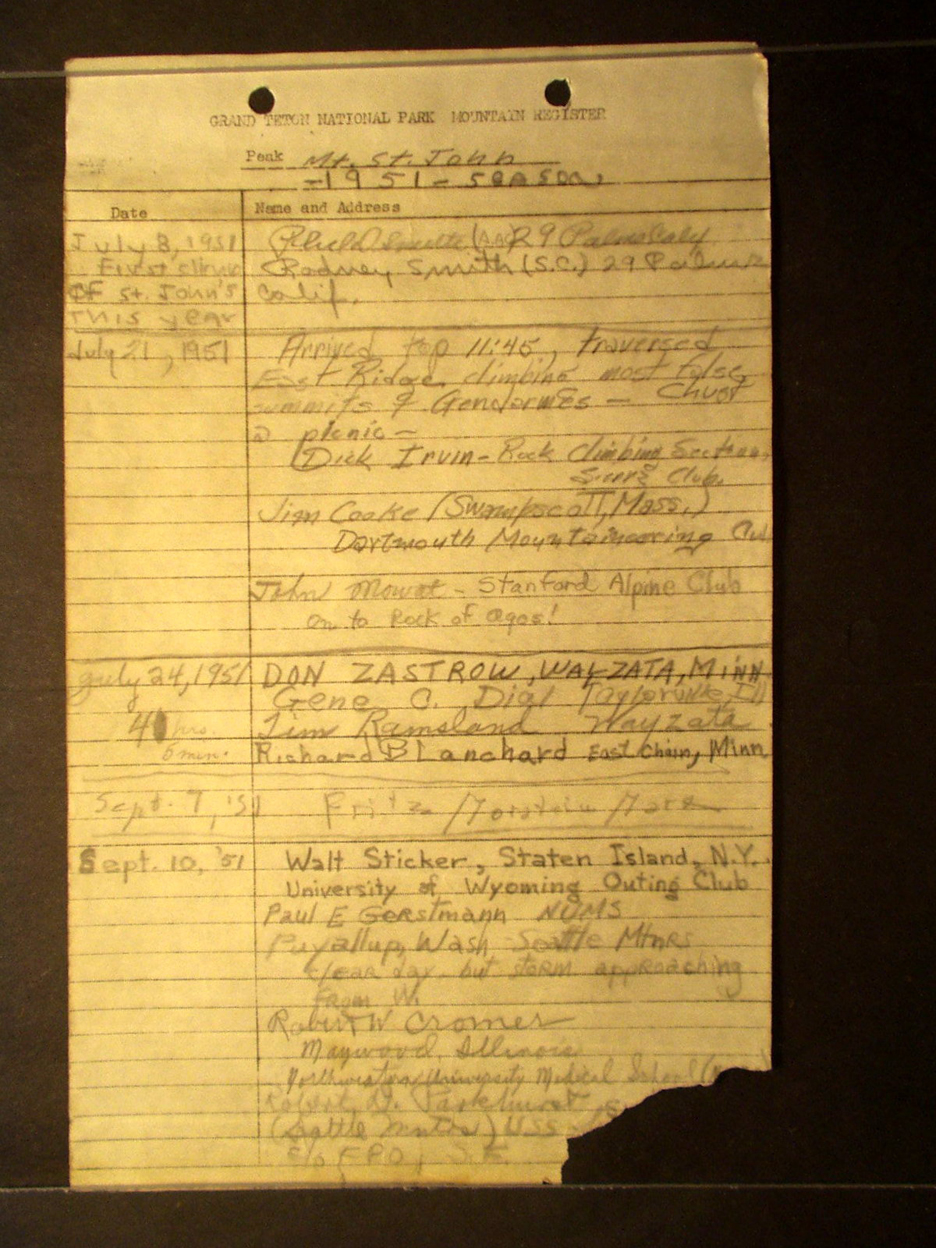 GRAND TETON NATIONAL PARK MOUNTAIN REGISTER
Peak Mt. St. John
-1951- season,
Date Name and Address
July 8, 1951 (AAC) 29 Palms Calif
First climb Rodney Smith (S.C.) 29 Palms
of St. John's Calif.
this year
July 21, 1951 Arrived top 11:45, traversed
East Ridge climbing most false
summits & Gendarmes -
a picnic -
Dick Irvin - Rock Climbing Section,
Sierra Club.
Jim Cooke (Swampscott, Mass.)
Dartmouth Mountaineering
John Mowat - Stanford Alpine Club
on to Rock of Ages!
July 24, 1951 DON ZASTROW, WAYZATA, MINN
Gene C. Dial Taylorville, Ill
4 hrs. Jim Ramsland Wayzata
5 min. Richard Blanchard East Chain, Minn
Sept. 7, '51 Fritz
Sept. 10, '51 Walt Sticker, Staten Island, N.Y.
University of Wyoming Outing Club
Paul E Gerstmann NUMS
Puyallup, Wash Seattle Mtnrs
clear day, but storm approaching
from W.
Robert W Cromer
Maywood, Illinois
Northwestern University Medical School
Robert D. Parkhurst
(Seattle Mntnrs) USS
c/o FPO, S.F.